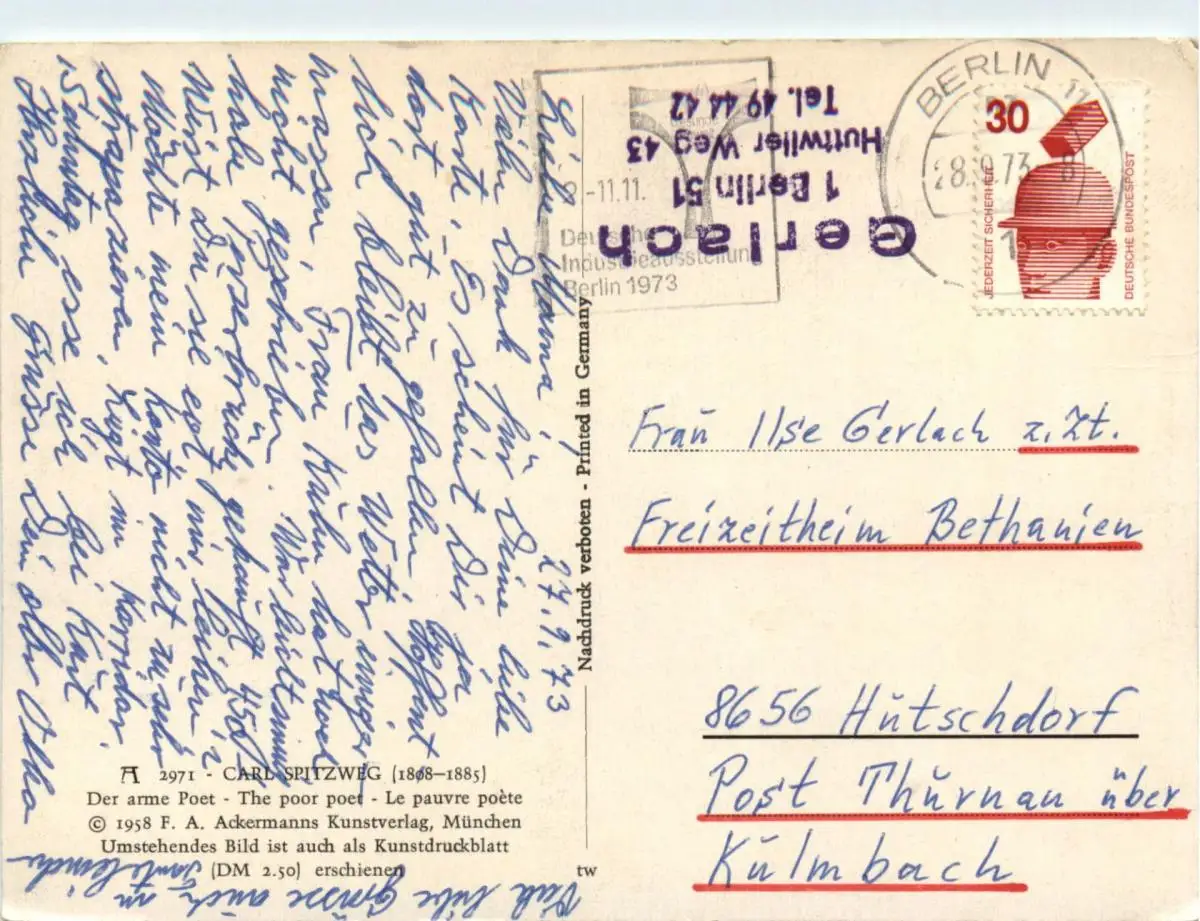 Liebe Hanna! 27.9.73
Vielen Dank für Deine liebe
Karte. Es scheint Dir ja
dort gut zu gefallen. Hoffent-
lich bleibt das Wetter
wissen. Frau Kühn hat noch
nicht geschrieben. War
habe
Wirst Du sie evt. mir leihen?
Möchte mein Konto nicht zu sehr
strapazieren. Liegt im Korridor.
Samstag esse ich bei Kurt.
Herzliche Grüsse Dein alter Otto
Viele liebe Grüsse auch an
Tante
A 2971 - CARL SPITZWEG (1808–1885)
Der arme Poet - The poor poet - Le pauvre poète
© 1958 F. A. Ackermanns Kunstverlag, München
Umstehendes Bild ist auch als Kunstdruckblatt
(DM 2.50) erschienen
tw
Nachdruck verboten - Printed in Germany
-11.11.
Deutsche
Industrieausstellung
Berlin 1973
Gerlach
1 Berlin 51
Huttwiler Weg 43
Tel. 49 44 42
BERLIN 11
28.9.73
1
30
JEDERZEIT SICHERHEIT
DEUTSCHE BUNDESPOST
Frau Ilse Gerlach z.Zt.
Freizeitheim Bethanien
8656 Hutschdorf
Post Thurnau über
Kulmbach